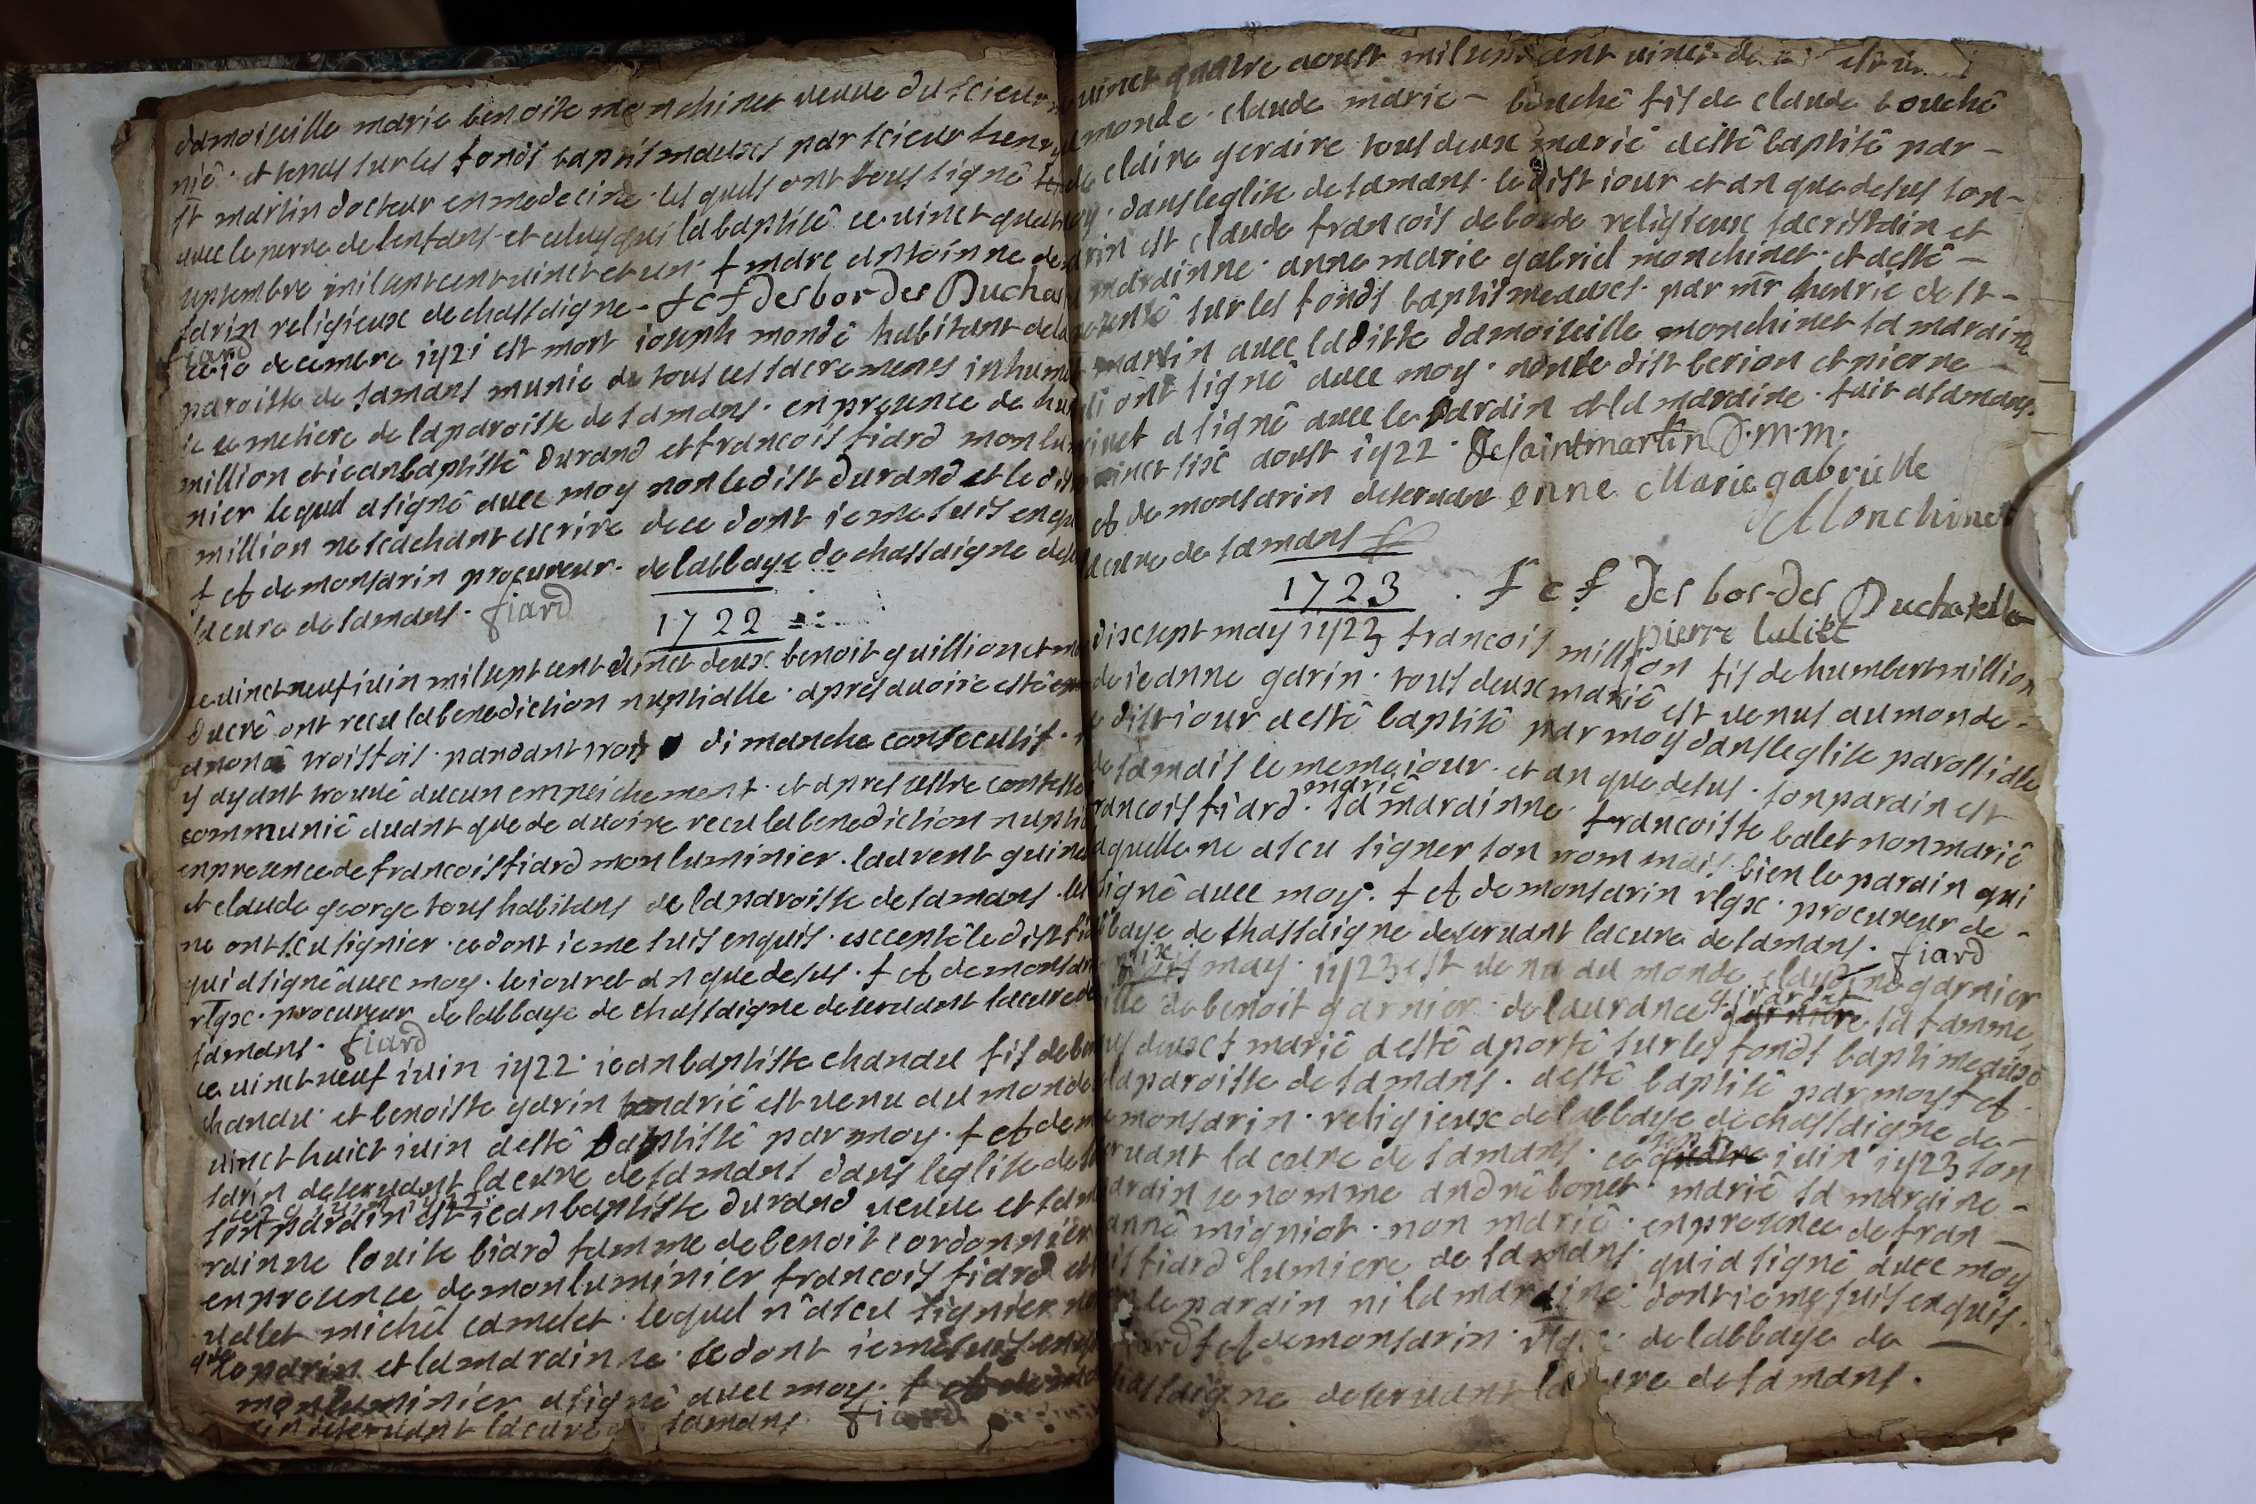 damoiseille marie benoite monchinet veuve du scieur
nié. et tenus sur les fonds baptismauses par scieur henry
st martin docteur en medecine. les quels ont tous signé
avec le perre de lenfans et celuy qui la baptisé ce vinct quatre
septembre mil sept cent vinct et un. f marc antoinne de
sarin religieux de chassaigne - f c f Des bordes Duchas
fiard
ce 10 decembre 1721 est mort joseph mondé habitant de la
paroisse de samans munie de tous ses sacremens inhumé
le cemetiere de la paroisse de samans. en presence de hum
million et jean baptisté durand et francois fiard mon lu
nier lequel a signé avec moy non le dist durand et le dist
million ne scachant escrire de ce dont je me suis enqu
f A de monsarin procureur. de labbaye de chassaigne des
la cure de samans. fiard
1722
ce vinct neuf juin mil sept cent vinct deux benoit guillionet
ducré ont receu la benediction nuptialle. apres avoire esté
anoncé trois fois. pandant trois dimanche consecutif.
y ayant trouvé aucun empeichement. et apres sestre confess
communié avant que de avoire receu la benediction nuptia
en presence de francois fiard mon luminier. laurent guine
et claude george tous habitans de la paroisse de samans. les
ne ont scu signier. ce dont je me suis enquis. excepté le dist fia
qui a signé avec moy. le jour et an que desus. f A de monsar
rlgx. procureur de labbaye de chassaigne deservant la cure de
samans. fiard
ce vinct neuf juin 1722. jean baptiste chanau fis de be
chanau. et benoiste garin marié est venu au monde
vinct huict juin a esté baptissé par moy. f A de m
sarin deservant la cure de samans dans leglise de
ce 29 juin 1722
son pardain est jean baptiste durand veuve et sa
rainne louise biard famme de benoit cordonnier
en presence de mon luminier francois fiard et
vallet michel camelet. lequel n'a scu signier
que le parin et la marainne. de dont je me suis enq
mon luminier a signé avec moy. f A de
rin deservant la cure samans fiard
vinct quatre aoust mil sept cent vinct
monde. claude marie - bouché fis de claude bouché
claire geraire tous deux marié a esté baptisé par -
dans leglise de samans. le dist jour et an que desus son -
rin est claude francois de borde religieux sacristain et
marainne. anne marie gabriel monchinet. et a esté -
senté sur les fonds baptismeauses. par mr henrie de st -
martin avec la ditte damoiseille monchinet sa maraine
ont signé avec moy. non le dist berion et pierre
a signé avec le pardain et la maraine. fait a samans.
vinct sixe aoust 1722. De saint martin D.m.m.
A de monsarin deservant enne Marie gabrielle
de Monchinet
la cure de samans
1723 . f c f Des bor-des Duchatella
pierre lulict
dix sept may 1723 francois million fis de humbert million
de jeanne garin. tous deux marié est venus au monde -
dist jour a esté baptisé par moy dans leglise parossialle
de samais le meme jour. et an que desus. son parain est
marié
francois fiard. sa marainne. francoiste balet non marié
laquelle ne a scu signer son nom mais bien le parain qui
signé avec moy. f A de monsarin rlgx. procureur de -
labbaye de chassaigne deservant la cure de samans. fiard
may. 1723 est venu au monde claudine garnier
girardet
fille de benoit garnier. de laurance garniere sa famme
deuxes marié a esté aporté sur les fonds baptimeause
la paroisse de samans. a esté baptisé par moy f A.
monsarin. religieux de labbaye de chassaigne de -
sept
servant la cure de samans. ce quatre juin 1723 son
pardain se nomme andré bonet marié sa mardine -
anné migniot. non marié. en presence de fran -
cois fiard lumiere de samans. qui a signé avec moy
le pardain ni la mardine. dont je me suis enquis.
fiard f A de monsarin. rlgx. de labbaye de -
chassaigne deservant la cure de samans.